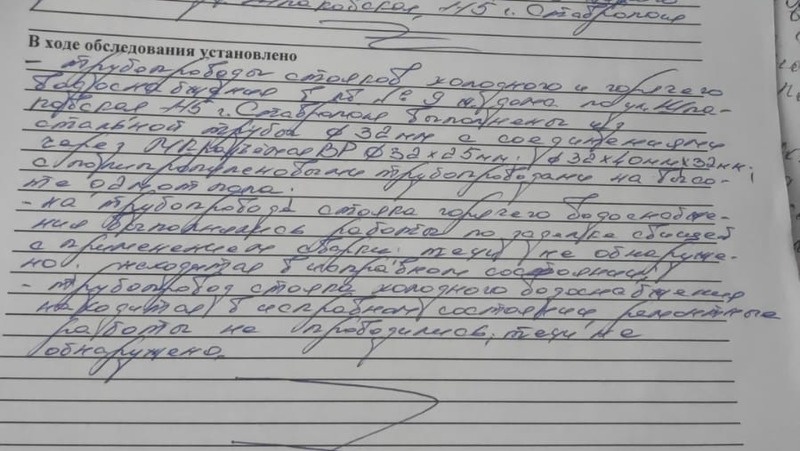 Шпаковская, 115 г. Ставрополя
В ходе обследования установлено
- трубопроводы стояков холодного и горячего
водоснабжения в кв № 9 ж/дома по ул. Шпа-
ковская 115 г. Ставрополя выполнены из
стальной трубы ф 32 мм с соединениями
через ВР ф 32х25мм; ф 32х40ммх32мм;
с полипропиленовыми трубопроводами на высо-
те от пола.
- на трубопроводе стояка горячего водоснабже-
ния выполнялись работы по заделке свищей
с применением сварки. течи не обнаруже-
но. находится в исправном состоянии
- трубопровод стояка холодного водоснабжения
находится в исправном состоянии, ремонтные
работы не проводились, течи не
обнаружено.